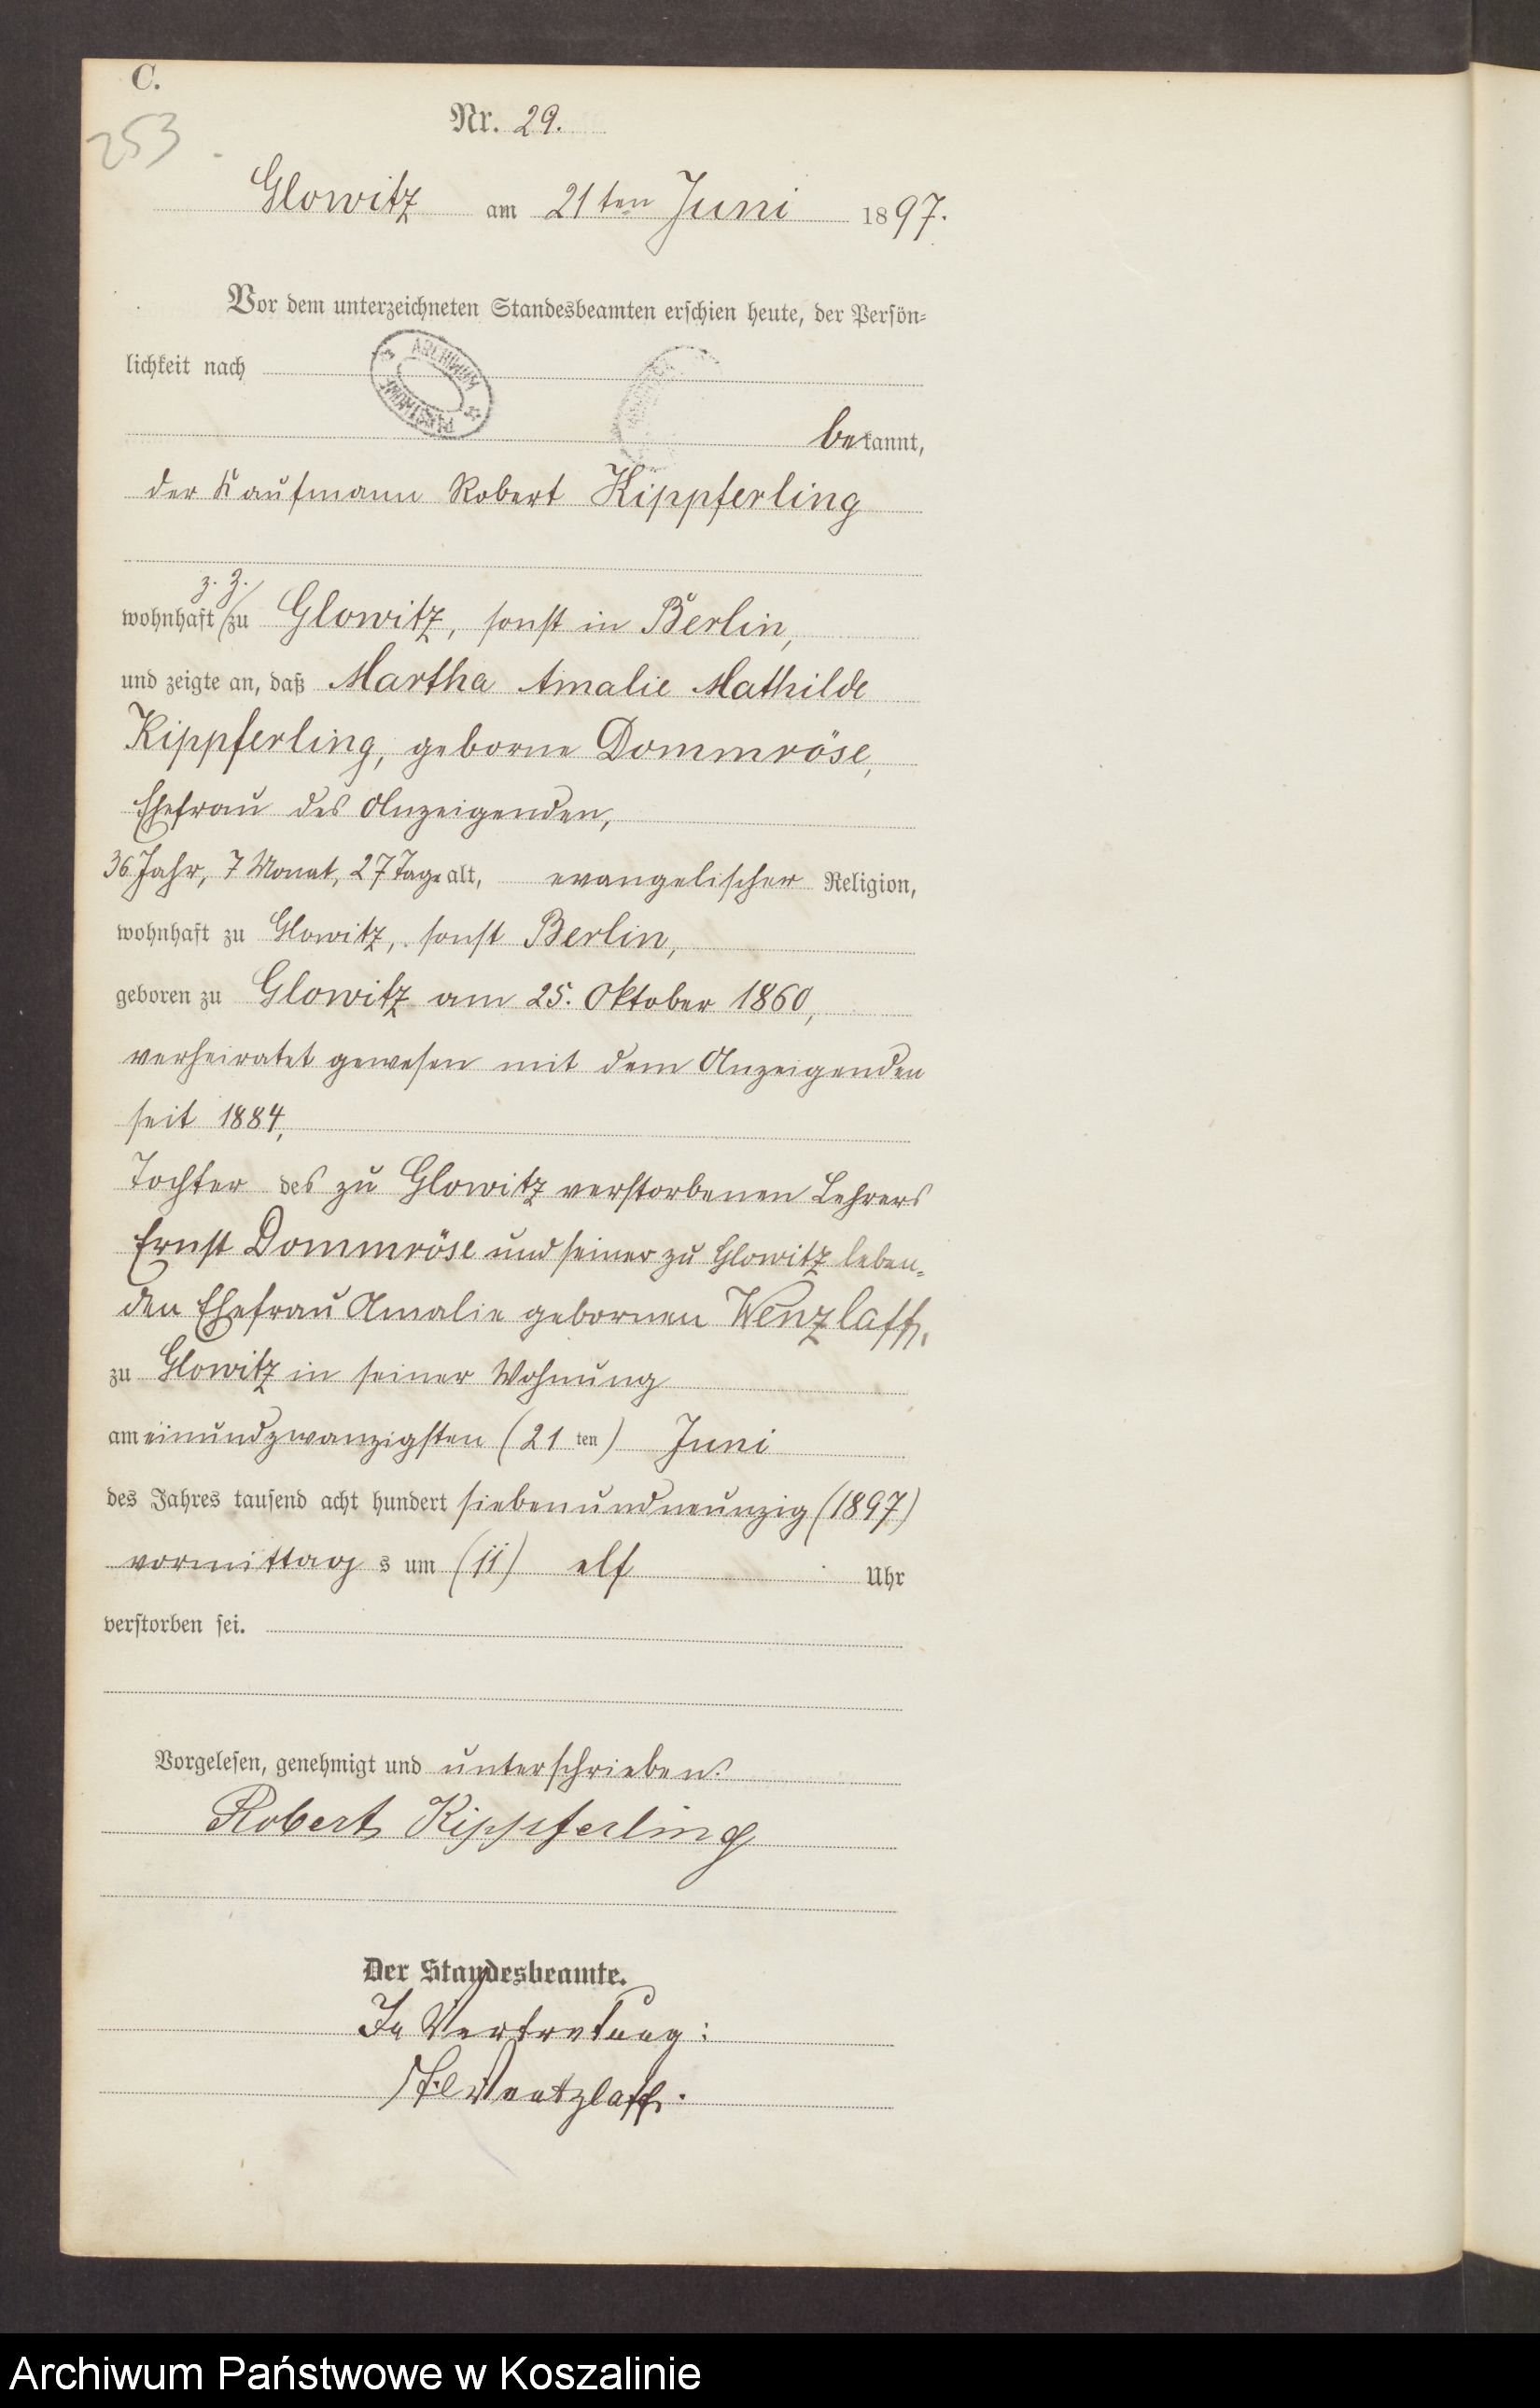 C.
253
Nr. 29.
Glowitz am 21ten Juni 1897.
Vor dem unterzeichneten Standesbeamten erschien heute, der Persön=
lichkeit nach
ARCHIWUM PAŃSTWOWE
bekannt,
der Kaufmann Robert Kippferling
z. Z.
wohnhaft zu Glowitz, sonst in Berlin,
und zeigte an, daß Martha Amalie Mathilde
Kippferling, geborne Dommröse,
Ehefrau des Anzeigenden,
36 Jahr, 7 Monat, 27 Tage alt, evangelischer Religion,
wohnhaft zu Glowitz, sonst Berlin,
geboren zu Glowitz am 25. Oktober 1860,
verheiratet gewesen mit dem Anzeigenden
seit 1884,
Tochter des zu Glowitz verstorbenen Lehrers
Ernst Dommröse und seiner zu Glowitz leben=
den Ehefrau Amalie gebornen Wenzlaff,
zu Glowitz in seiner Wohnung
am einundzwanzigsten (21 ten) Juni
des Jahres tausend acht hundert siebenundneunzig (1897)
vormittag s um (11) elf Uhr
verstorben sei.
Vorgelesen, genehmigt und unterschrieben.
Robert Kippferling
Der Standesbeamte.
In Vertretung:
Wentzlaff.
Archiwum Państwowe w Koszalinie